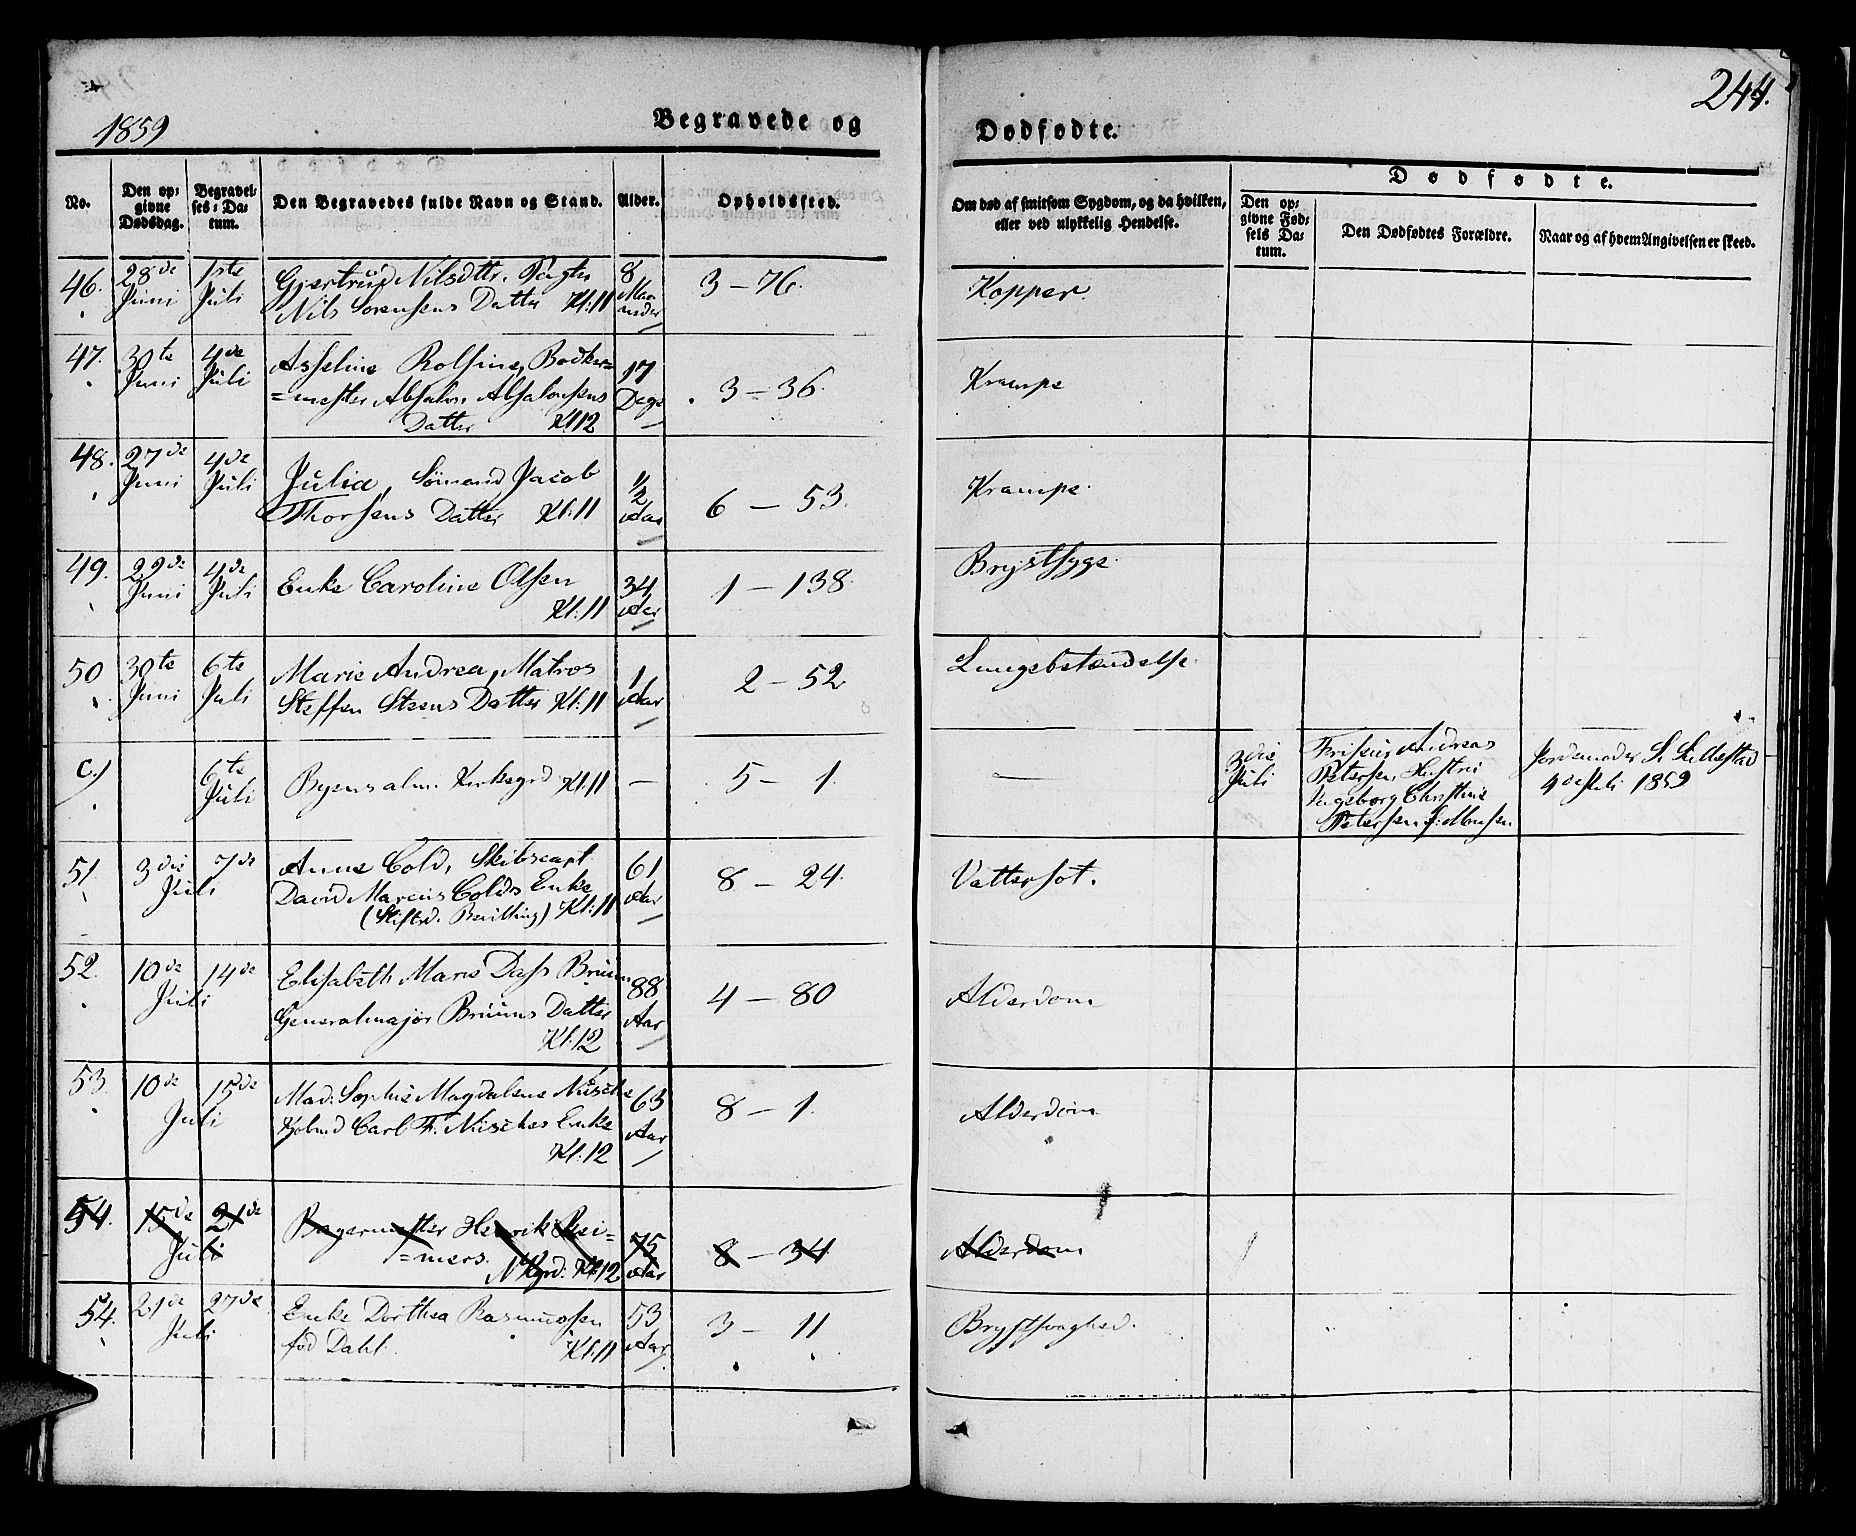 1859
Begravede og
Dødfødte.
244.
No.
Den op=
givne
Dødsdag.
Begravel=
ses=Da=
tum.
Den Begravedes fulde Navn og Stand.
Alder.
Opholdssted.
Om død af smitsom Sygdom, og da hvilken,
eller ved ulykkelig Hendelse.
Dødfødte.
Den op=
givne Fød=
sels Da=
tum.
Den Dødfødtes Forældre.
Naar og af hvem Angivelsen er skeed.
46. 28de Juni 1ste Juli Gjertrüd Nilsdttr.
Nils Sørensens Datter Kl: 11 8 Maaneder 3 – 76. Kopper.
47. 30te Juni 4de Juli Asseline Rolfine, Bødker=
=mester Absalon Absalonsens
Datter Kl12 17 Dage 3 – 36. Krampe
48. 27de Juni 4de Juli Julia, Sømand Jacob
Thorsens Datter Kl: 11 1/2 Aar 6 – 53. Krampe.
49. 29de Juni 4de Juli Enke Caroline Olsen
Kl: 11 34 Aar 1 – 138. Brystsyge.
50 30te Juni 6te Juli Marie Andrea, Matros
Steffen Steens Datter Kl: 11 1 Aar 2 – 52 Lungebetændelse.
C.) 6te Juli Byens alm. Kirkegrd Kl: 11 – 5 – 1. –
3die Juli
Andreas
Petersen Hustru
Ingeborg Christine
Petersen f: Monsen
Jordemoder
4de Juli 1859
51. 3die Juli 7de Anne Cold, Skibscapt
David Marcus Colds Enke
(Stiftsd. Bevilling) Kl: 11 61 Aar 8 – 24. Vattersot.
52. 10de Juli 14de Elisabeth Marie Dass Brüun
Generalmajor Brüuns Datter
Kl: 12 88 Aar 4 – 80 Alderdom
53. 10de Juli 15de Mad. Sophie Magdalene
Kjøbmd Carl F. Enke
Kl: 12 63 Aar 8 – 1. Alderdom
54. 15de Juli 21de Bagermester Henrik Rei=
=mers. Kl12 75 Aar 8 – 34 Alderdom
54. 21de Juli 27de Enke Dorthea Rasmussen
fød Dahl. Kl: 11 53 Aar 3 – 11 Brystsvaghed.